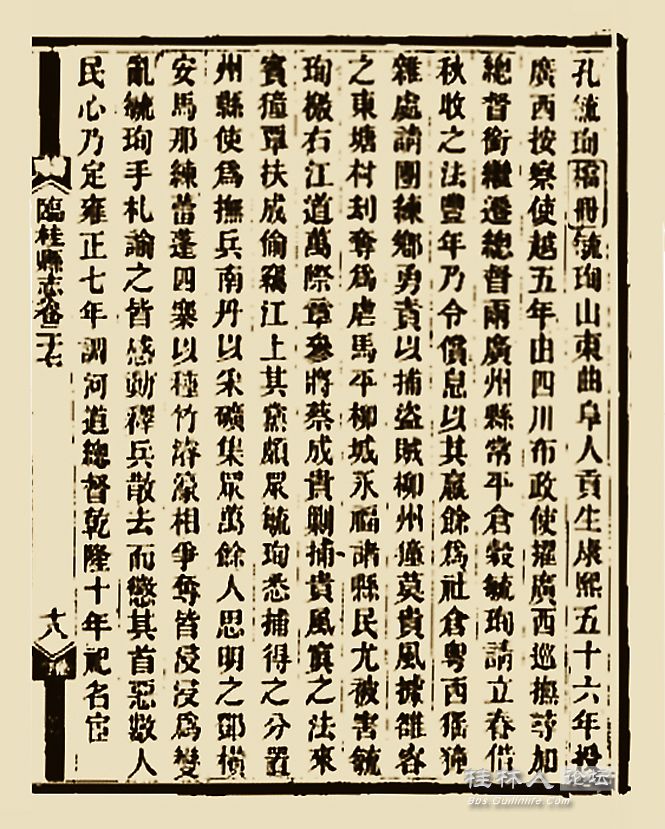 孔毓珣檔冊毓珣山東曲阜人貢生康熙五十六年授
廣西按察使越五年由四川布政使擢廣西巡撫尋加
總督銜繼遷總督兩廣州縣常平倉穀毓珣請立春借
秋收之法豐年乃令償息以其贏餘為社倉粵西猺獞
雜處請團練鄉勇責以捕盜賊柳州獞莫貴風據雒容
之東塘村刦奪為虐馬平柳城永福諸縣民尤被害毓
珣檄右江道萬際章參將蔡成貴剿捕貴風寘之法來
賓獞覃扶成偷竊江上其黨頗眾毓珣悉捕得之分置
州縣使為撫兵南丹以采礦集眾萬餘人思明之鄧橫
安馬那練蕾蓬四寨以種竹濬濠相爭奪皆侵浸為變
亂毓珣手札諭之皆感動釋兵散去而懲其首惡數人
民心乃定雍正七年調河道總督乾隆十年祀名宦
臨桂縣志卷二十七
十八
桂林人论坛
Bbs.Guilinlife.Com